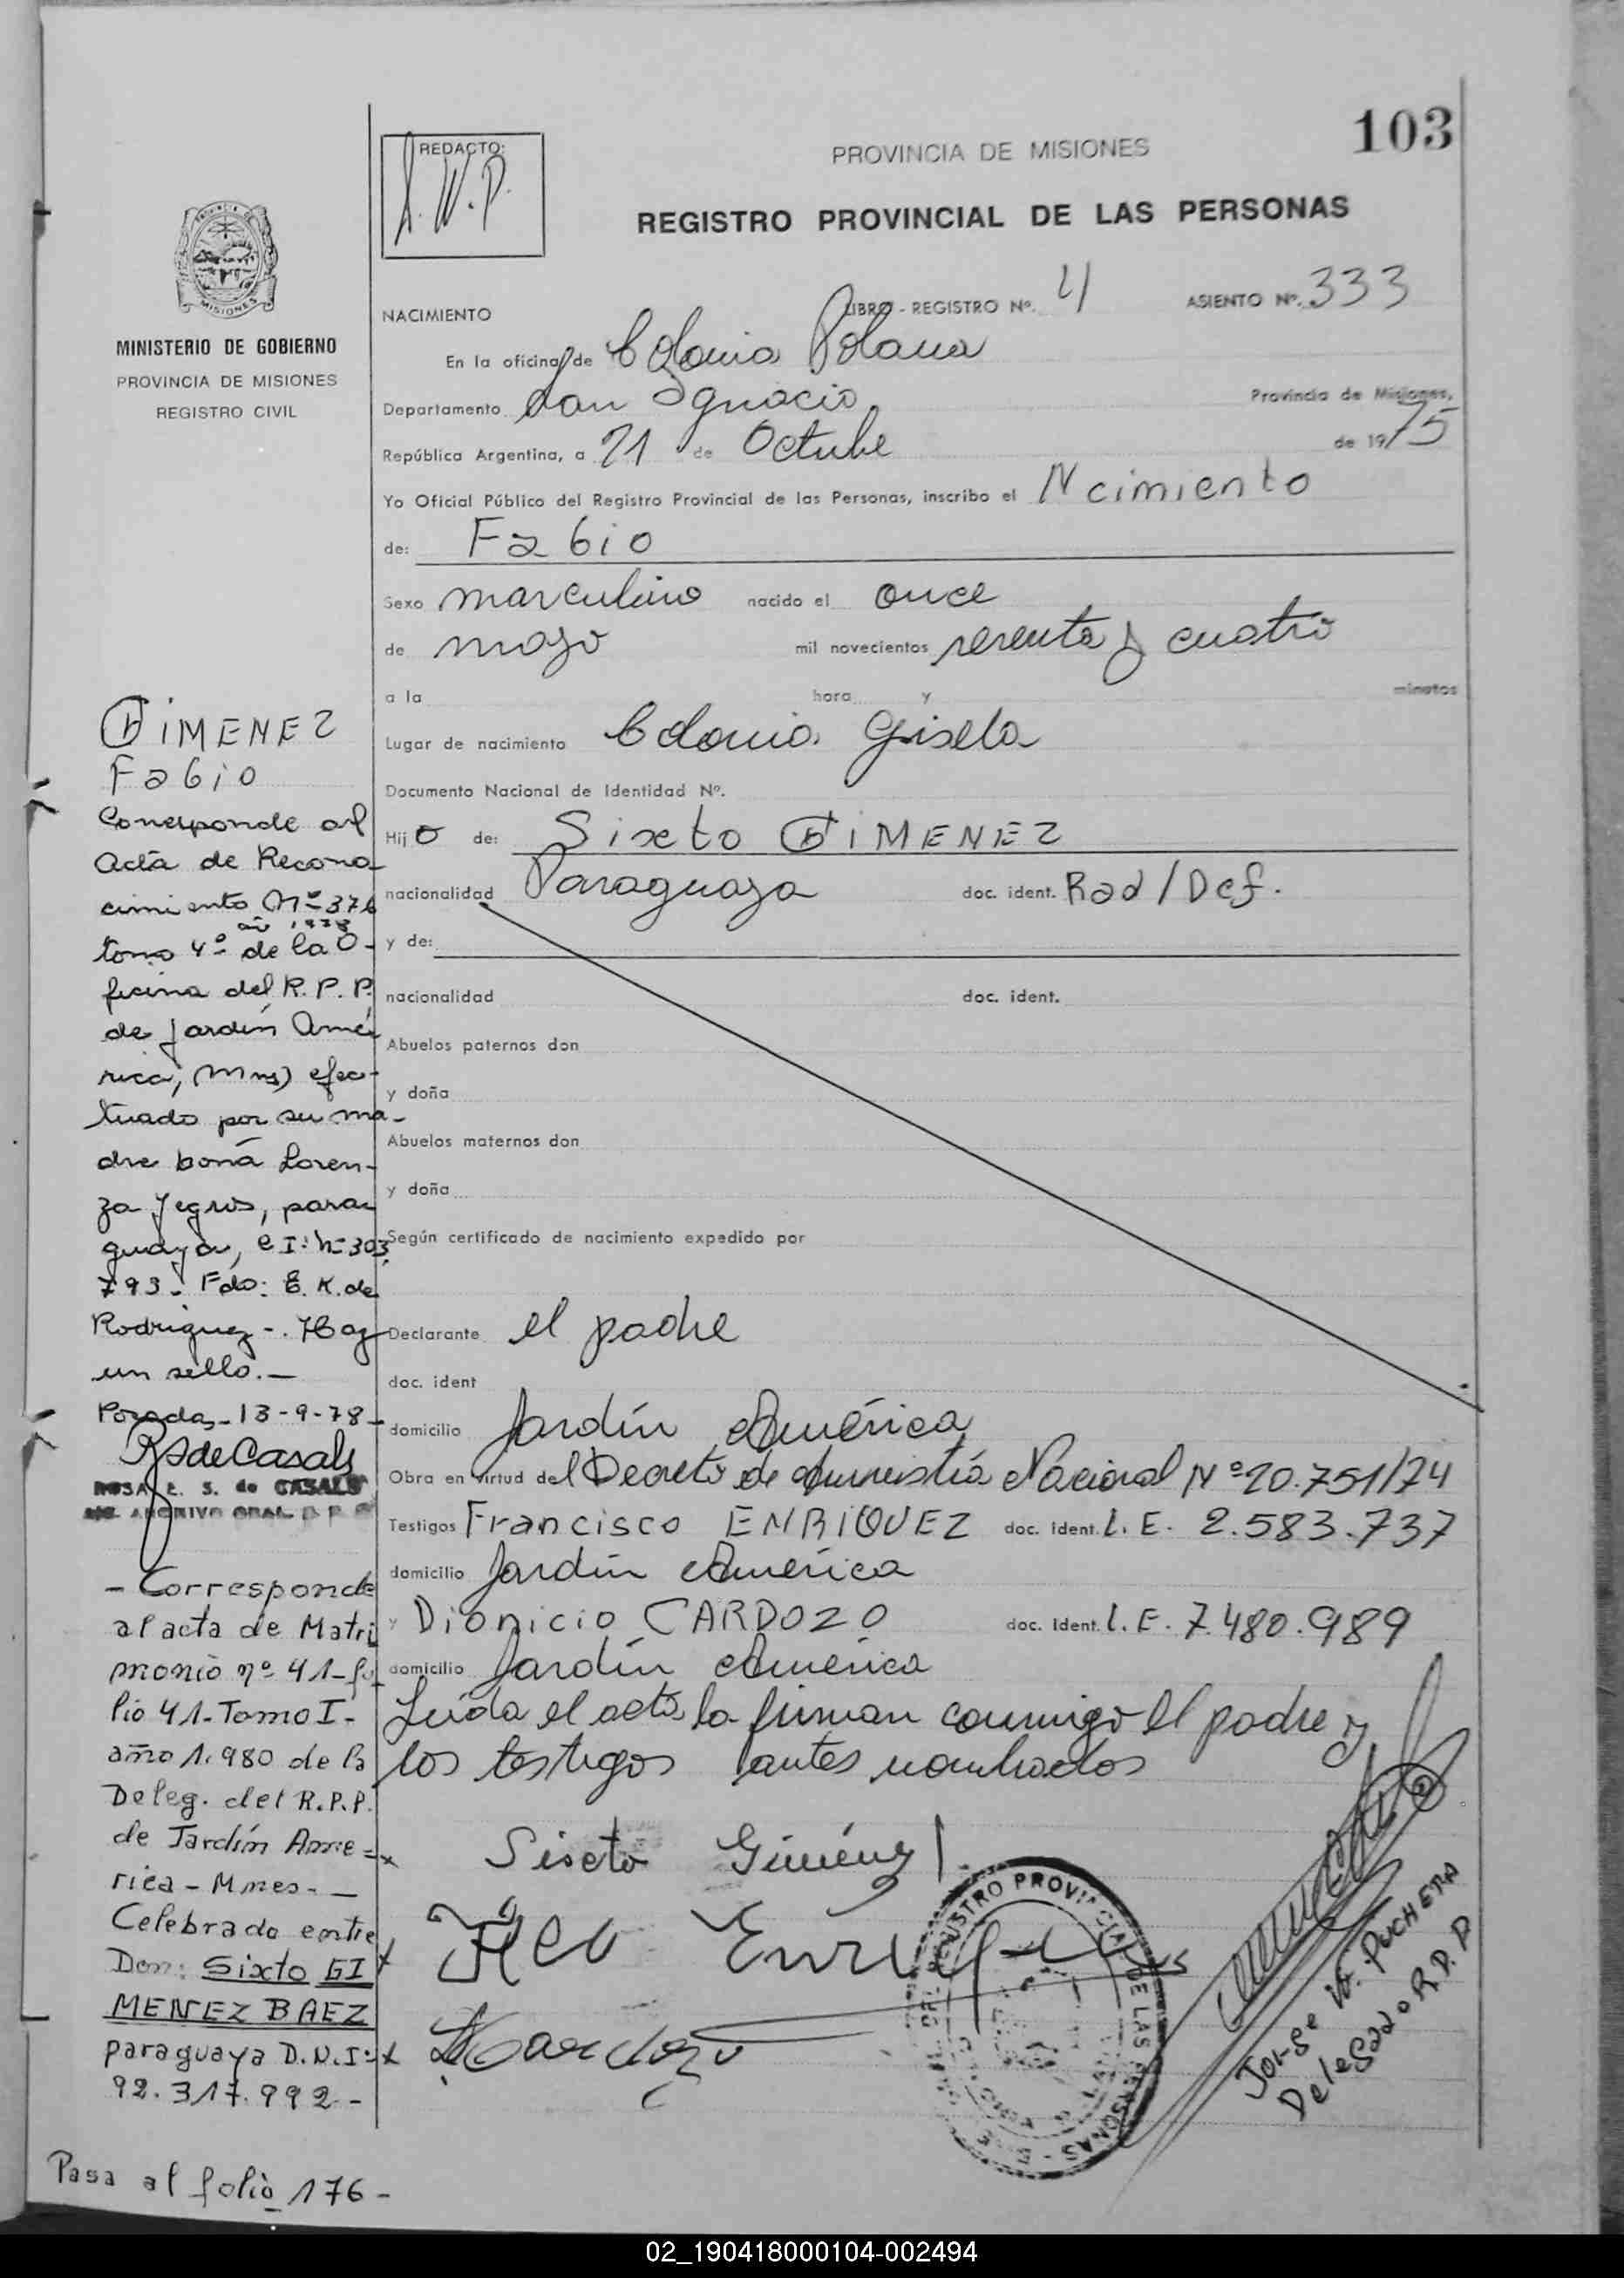 103
REDACTO:
PROVINCIA DE MISIONES
REGISTRO PROVINCIAL DE LAS PERSONAS
MISIONES
MINISTERIO DE GOBIERNO
PROVINCIA DE MISIONES
REGISTRO CIVIL
NACIMIENTO LIBRO - REGISTRO Nº. 4 ASIENTO Nº. 333
En la oficina de Colonia Polana
Departamento San Ignacio Provincia de Misiones,
República Argentina, a 21 de Octubre de 1975
Yo Oficial Público del Registro Provincial de las Personas, inscribo el Ncimiento
de: Fabio
Sexo masculino nacido el once
de mayo mil novecientos sesenta y cuatro
a la hora y minutos
Lugar de nacimiento Colonia Gisela
Documento Nacional de Identidad Nº.
Hijo de: Sixto GIMENEZ
nacionalidad Paraguaya doc. ident. Rad/Def.
y de:
nacionalidad doc. ident.
Abuelos paternos don
y doña
Abuelos maternos don
y doña
Según certificado de nacimiento expedido por
Declarante el padre
doc. ident
domicilio Jardín América
Obra en virtud del Decreto de Amnistía Nacional Nº 20.751/74
Testigos Francisco ENRIQUEZ doc. ident. L. E. 2.583.737
domicilio Jardín América
y Dionicio CARDOZO doc. ident. L. E. 7.480.989
domicilio Jardín América
Leída el acta, la firman conmigo el padre y
los testigos antes nombrados
Sixto Giménez
Fco Enriquez
Cardozo
REGISTRO PROVINCIAL DE LAS PERSONAS
Jorge W. PUCHETA
Delegado R.P.P
GIMENEZ
Fabio
Corresponde al
acta de Recono
cimiento Nº 376
año 1978
tomo 4º de la O-
ficina del R. P. P.
de Jardín Amé
rica, (Mnes) efec-
tuado por su ma-
dre doña Loren-
za Yegros, para
guaya, C I: Nº 303.
793. Fdo: E. K. de
Rodriguez -. Hay
un sello.-
Posadas-13-9-78-
RSdeCasals
ROSA E. S. de CASALS
- Corresponde
al acta de Matri
monio nº 41-fo
lio 41-Tomo I-
año 1.980 de la
Deleg. del R.P.P.
de Jardín Ame=
rica - Mnes. -
Celebrado entre
Don: Sixto GI
MENEZ BAEZ
paraguaya D.N.I:
92.317.992-
Pasa al folio 176-
02_190418000104-002494